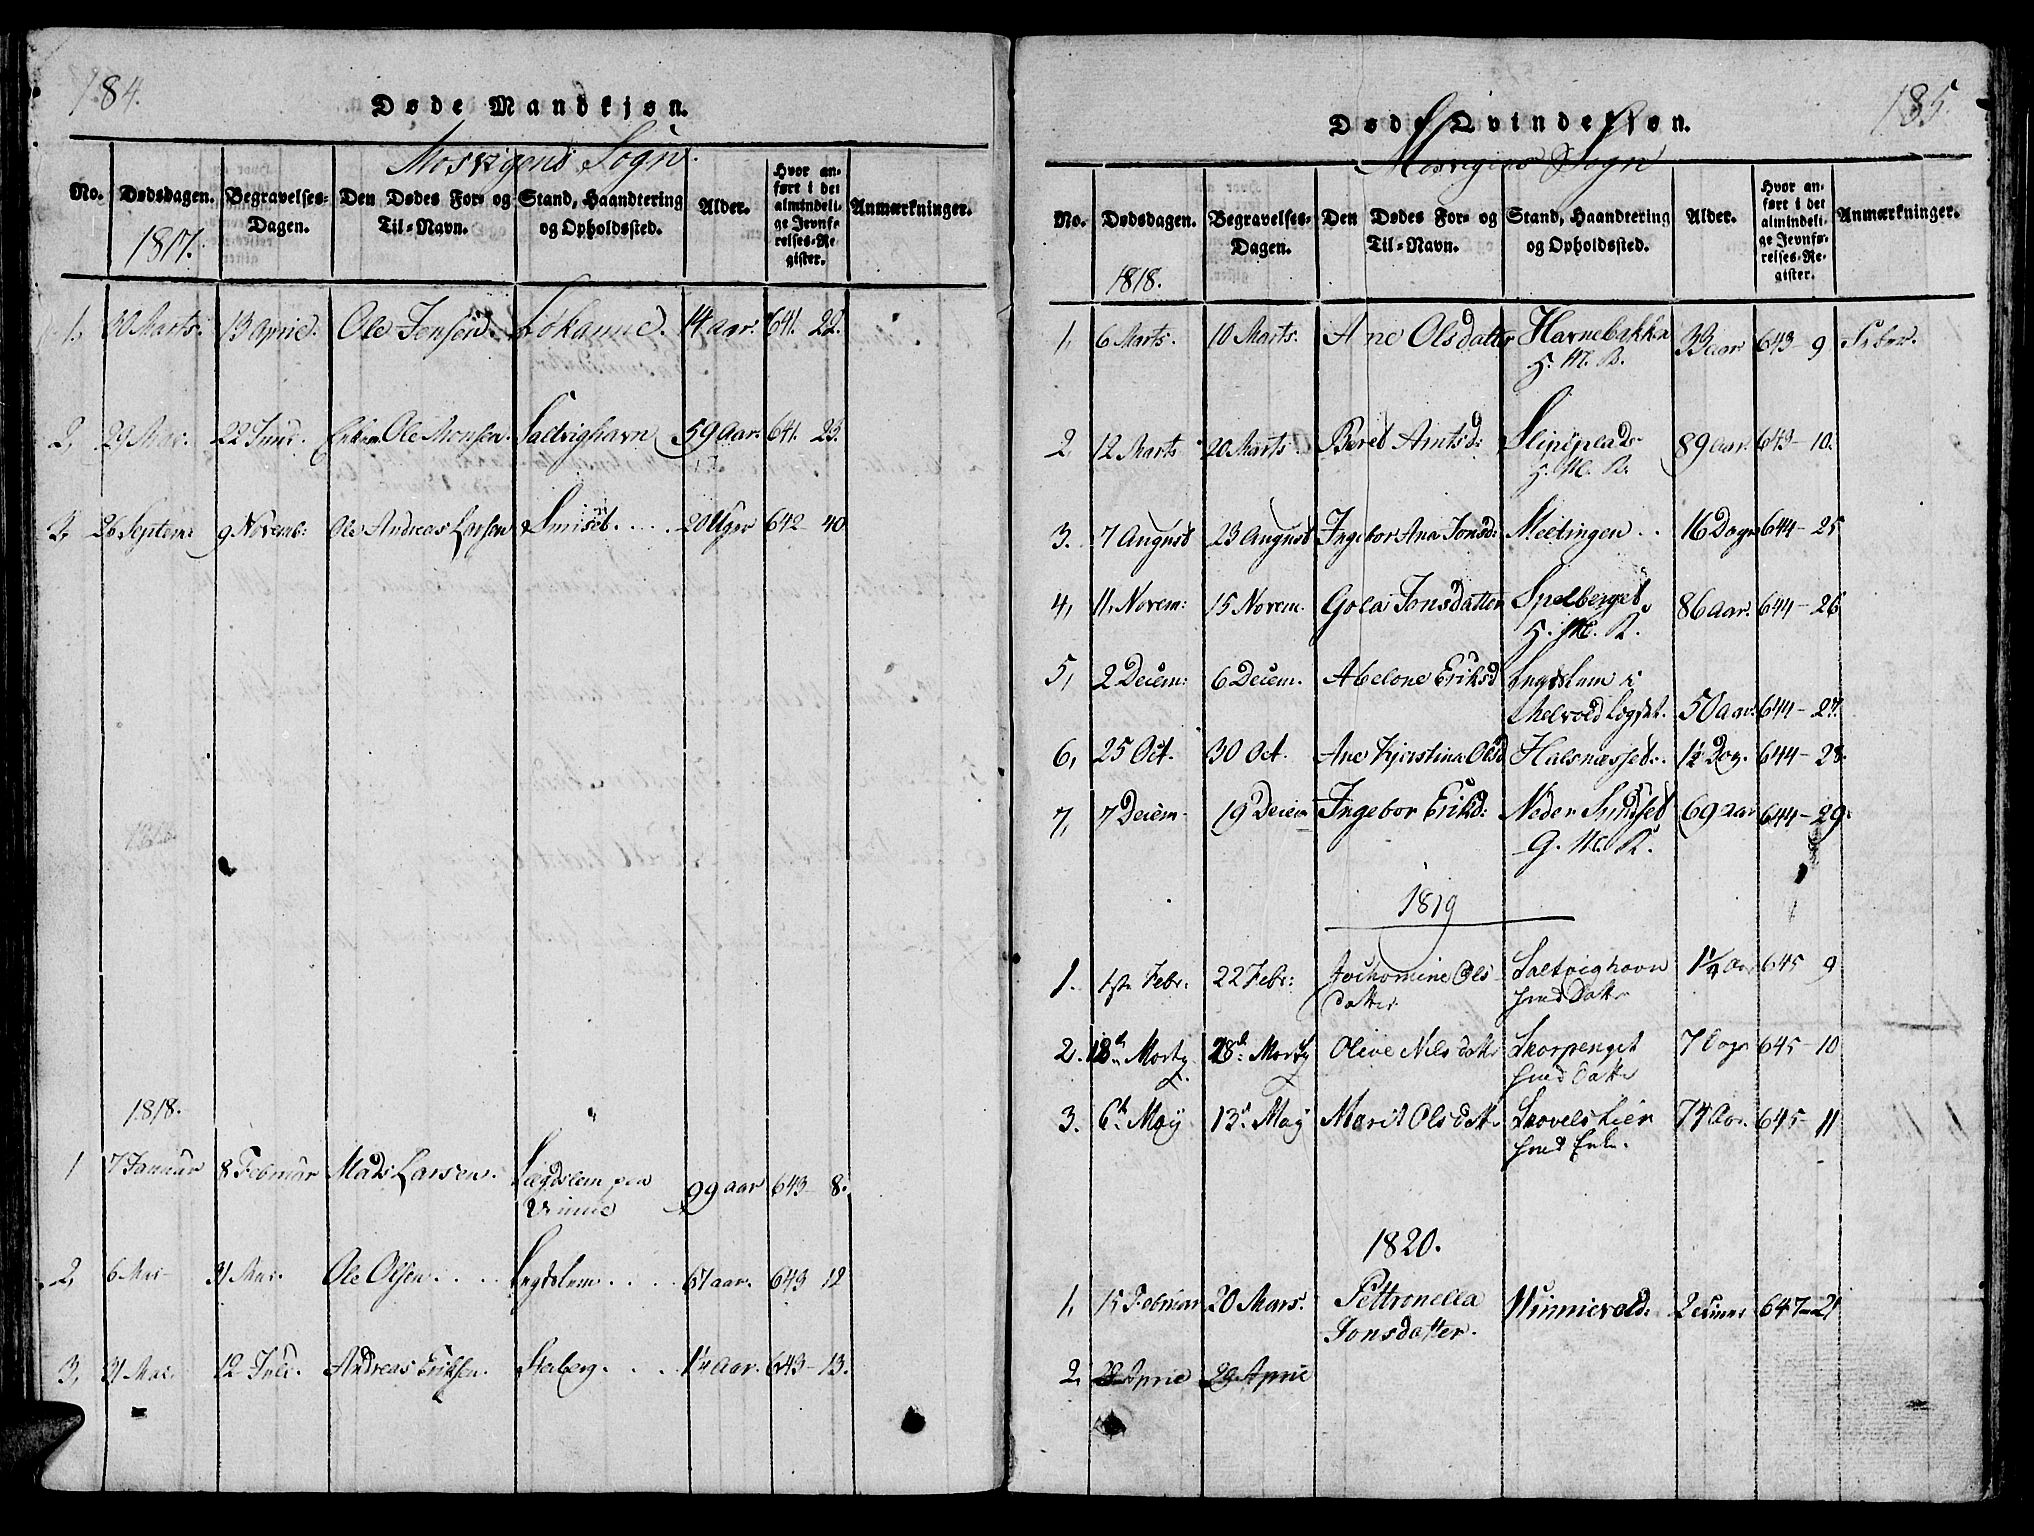 184.
Døde Mandkjøn.
Mosvigens Sogn.
No. Dødsdagen. Begravelses-Dagen. Den Dødes For- og Til-Navn. Stand, Haandtering og Opholdssted. Alder. Hvor anført i det almindelige Jevnførelses-Register. Anmærkninger.
1817.
1. 30 Marts. 13 April. Ole Jensen. 14 aar. 641. 22.
2, 29 Mai. 22 Juni. Ole Monsen. Saltvighavn 59 aar. 641. 23.
3, 26 Septem: 9 Novemb: Ole Andreas Larsen Smiset.... 20 Uger 642 - 40
1818.
1 7 Januar 8 Februar Mads Larsen. Lægdslem paa
Vinnie 99 aar 643 8.
2, 6 Mai 31 Mai. Ole Olsen.... Lægdslem.... 67 aar. 643 12
3, 31 Mai. 12 Juli. Andreas Eriksen. Staberg... 1½ aar. 643 - 13.
185.
Døde Qvindekjøn.
Mosvigens Sogn
No. Dødsdagen. Begravelses-Dagen. Den Dødes For- og Til-Navn. Stand, Haandtering og Opholdssted. Alder. Hvor anført i det almindelige Jevnførelses-Register. Anmærkninger.
1818.
1, 6 Marts. 10 Marts. Ane Olsdatter Harnebakken 33 aar 643 - 9
H. M. K.
2, 12 Marts 20 Marts. Beret Arntsd: 89 aar. 643 - 10.
H. M. K.
3. 7 August 23 August Ingebor Ana Jonsd: Meltingen.. 16 Dage 644 - 25
4, 11. Novem: 15 Novem. Golai Jonsdatter Spelberget, 86 aar. 644 - 26
H. M. K.
5, 2 Decem: 6 Decem. Abelone Eriksd Lægdslem i
50 aar. 644 - 27.
6, 25 Oct. 30 Oct. Ane Kjerstina Olsd Halsnæsset. 644 - 28.
7, 7 Decem 19 Decem Ingebor Eriksd: Neder Sundset 69 aar 644 - 29.
G. M. K.
1819
1. 1ste Febr: 22 Febr: Jochomine Ols Saltvighavn 645 9
datter
2. 18de Marty 28de Marty Olive Nils datter Skorpenget 7 Dage 645 - 10
3. 6te May 13de May Marit Olsdatter 74 Aar. 645 - 11
1820.
1, 15 Februar 20 Mars. Pettronella Winnievold: 647 - 21
Jonsdatter.
2, 22 April 29 April